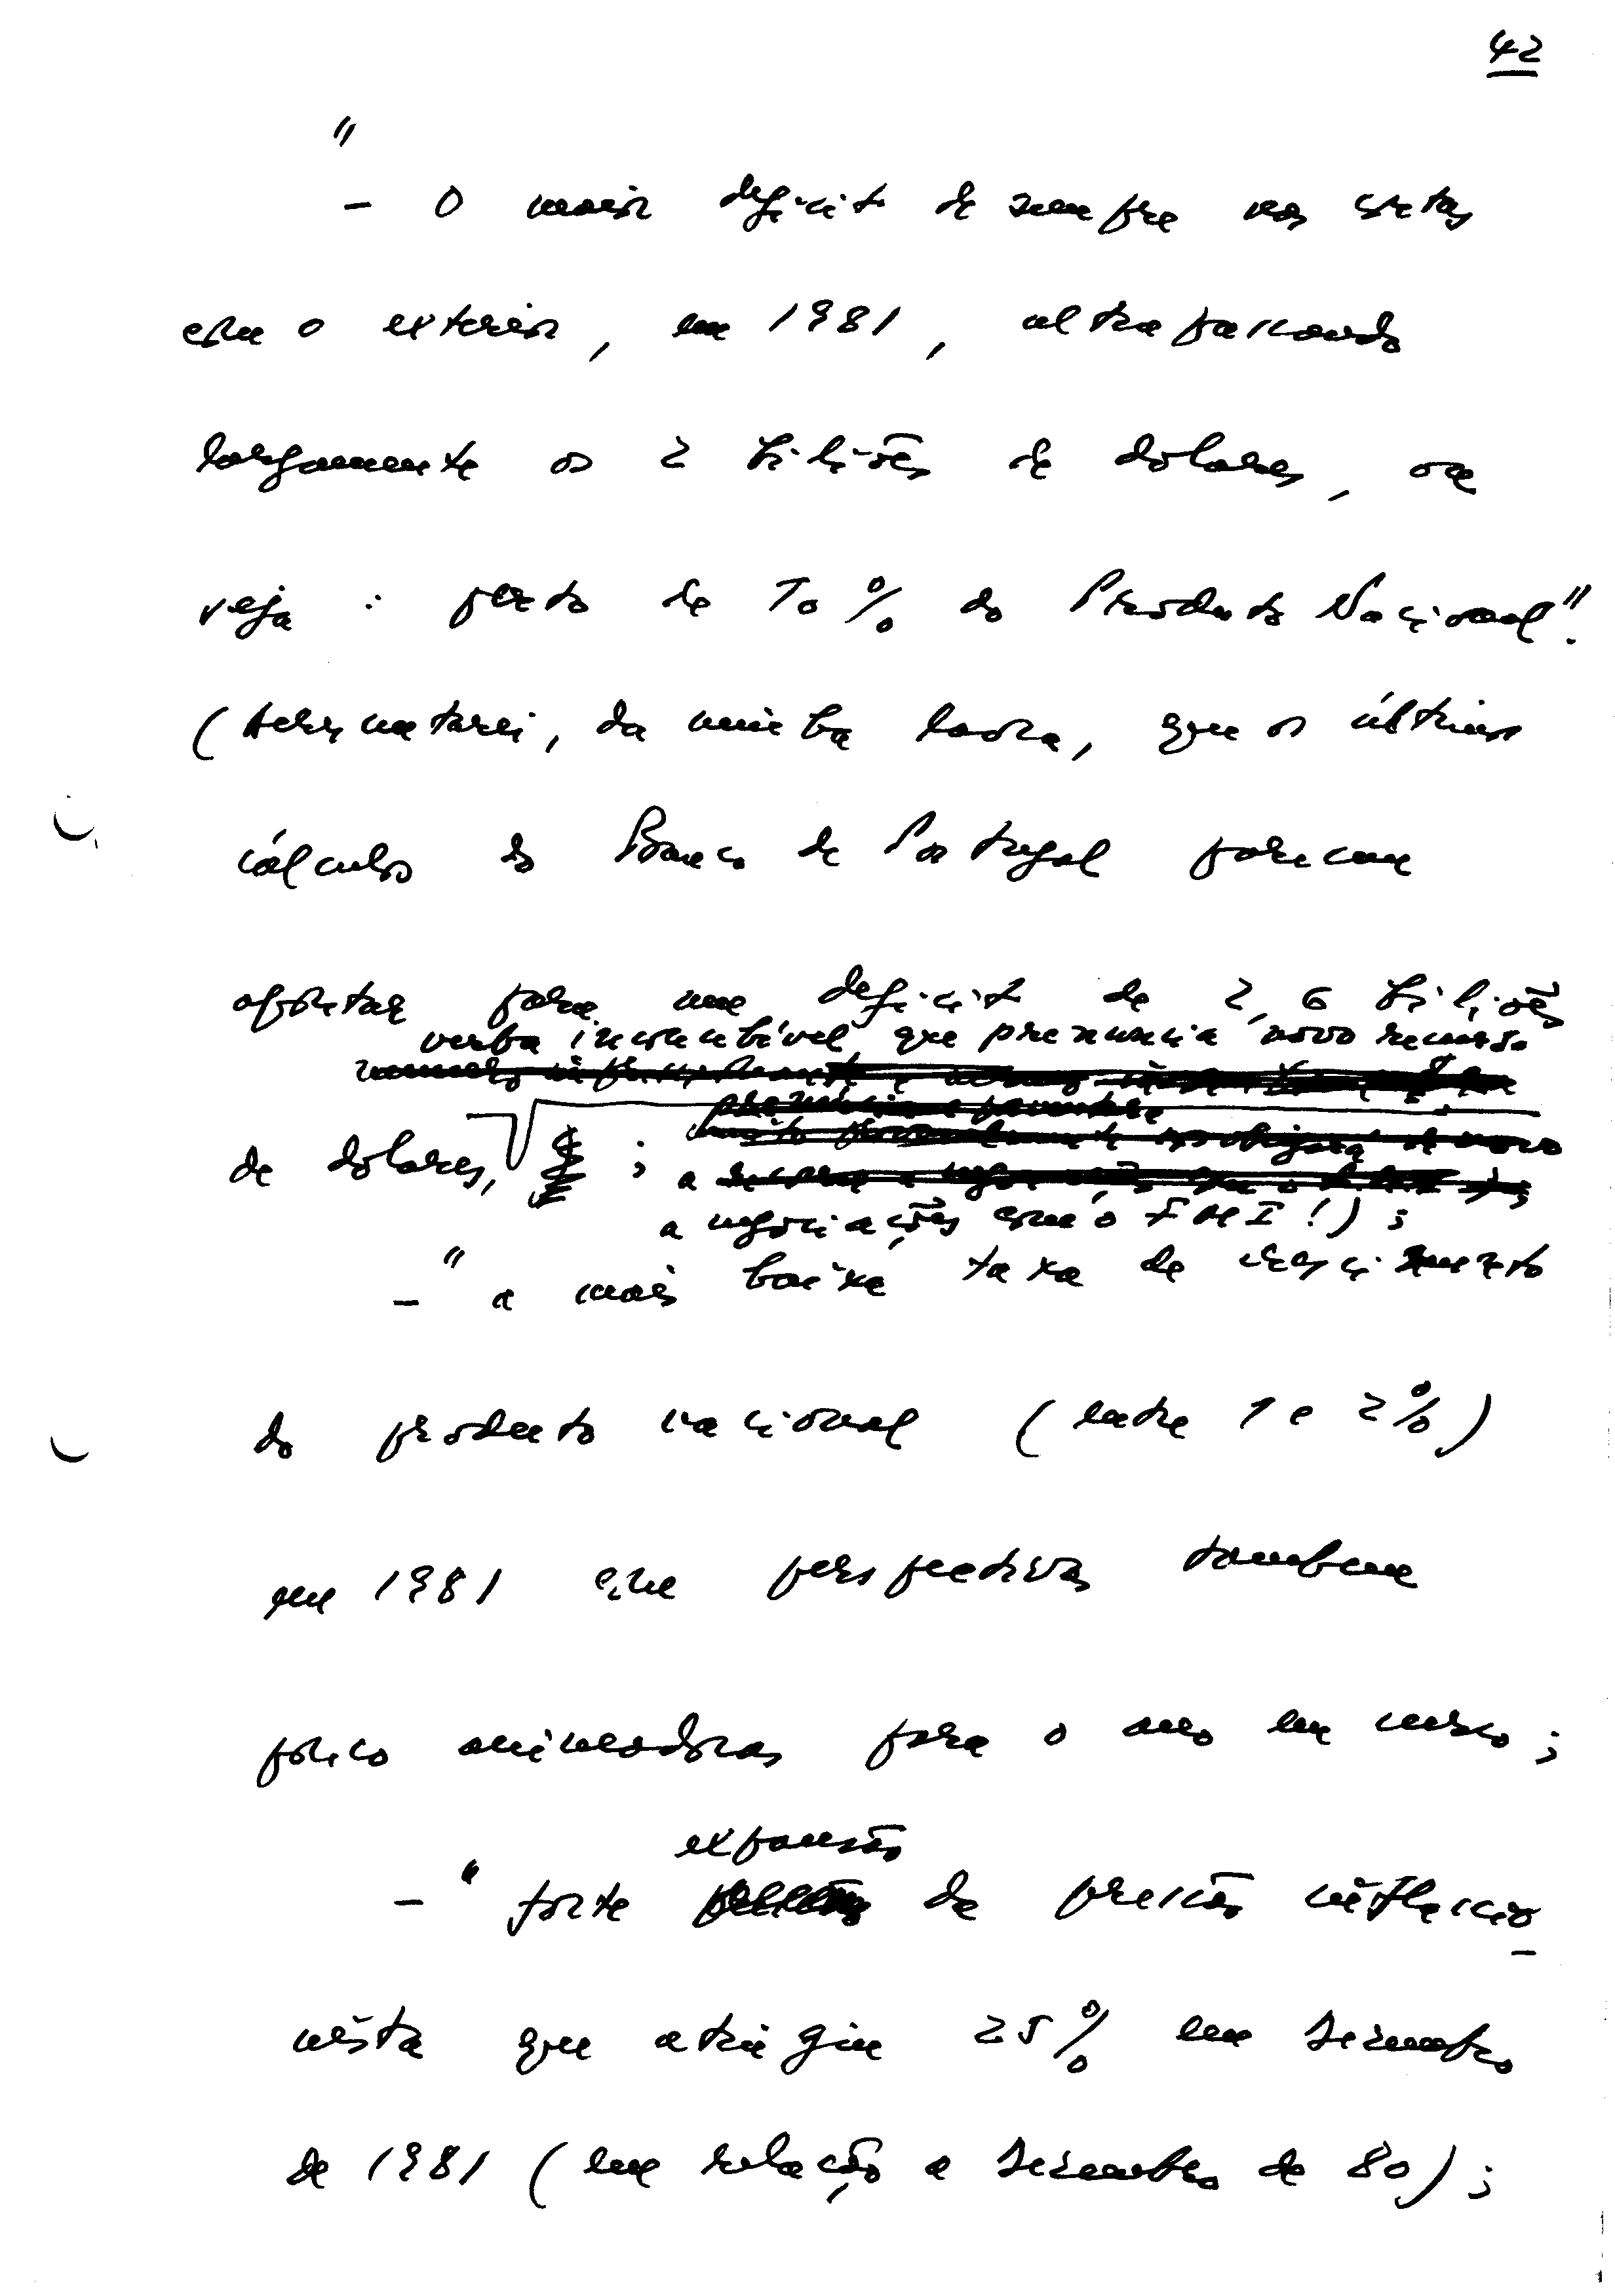 42
"
- O maior deficit de sempre nas contas
com o exterior, em 1981, ultrapassando
largamente os 2 biliões de dolares, ou
veja: perto de 10% do Producto Nacional".
(Acrescentarei, da minha lavra, que os últimos
cálculos do Banco de Portugal parecem
apontar para um deficit de 2,6 biliões
verba incomportável que prenuncia novo recurso
de dolares, ;
a negociações com o FMI!);
- "a mais baixa taxa de crescimento
do producto nacional (entre 1 e 2%)
em 1981 com perspectivas tambem
pouco animadoras para o ano em curso;
expansão
- "forte da pressão inflacio
nista que atingiu 25% em Dezembro
de 1981 (em relação a Dezembro de 80);